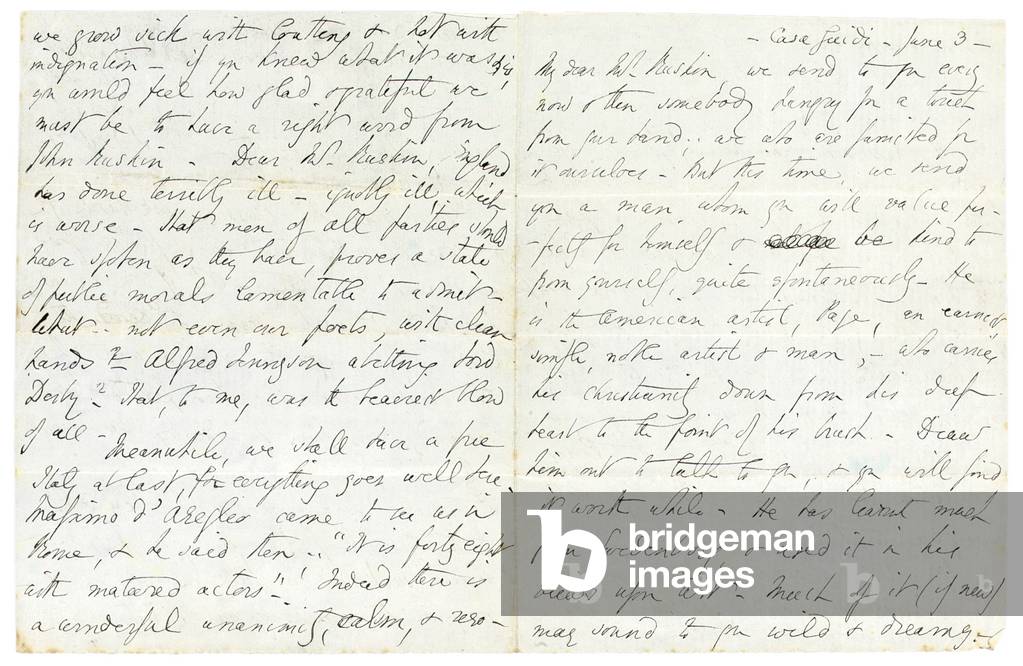 - Casa Guidi - June 3 -
My dear Mr. Ruskin, we send to you every
now & then somebody hungry for a touch
from your hand; we who are famished for
it ourselves - But this time, we send
you a man whom you will value per-
-fectly for himself & be kind to
from yourself, quite spontaneously - He
is the American artist, Page, an earnest
simple, noble artist & man, - who carries
his christianity down from his deep
heart to the point of his brush - Draw
him out to talk to you, & you will find
it worth while - He has learnt much
from Swedenborg & used it in his
views upon art - Much of it (if new)
may sound to you wild & dreamy -
we grow sick with & hot with
indignation - if you knew what it was,
you would feel how glad & grateful we
must be to have a right word from
John Ruskin - Dear Mr. Ruskin, England
has done terribly ill - ignobly ill, which
is worse - that men of all parties should
have spoken as they have, proves a state
of public morals lamentable to admit -
What .. not even our poets, with clean
hands? - Alfred Tennyson abetting Lord
Derby? That, to me, was the heaviest blow
of all -
Meanwhile, we shall have a free
Italy at last, for everything goes well here
Massimo d'Azeglio came to see us in
Rome, & he said then .. "It is forty eight
with matured actors"! Indeed there is
a wonderful unanimity, calm, & reso-
bridgeman
images